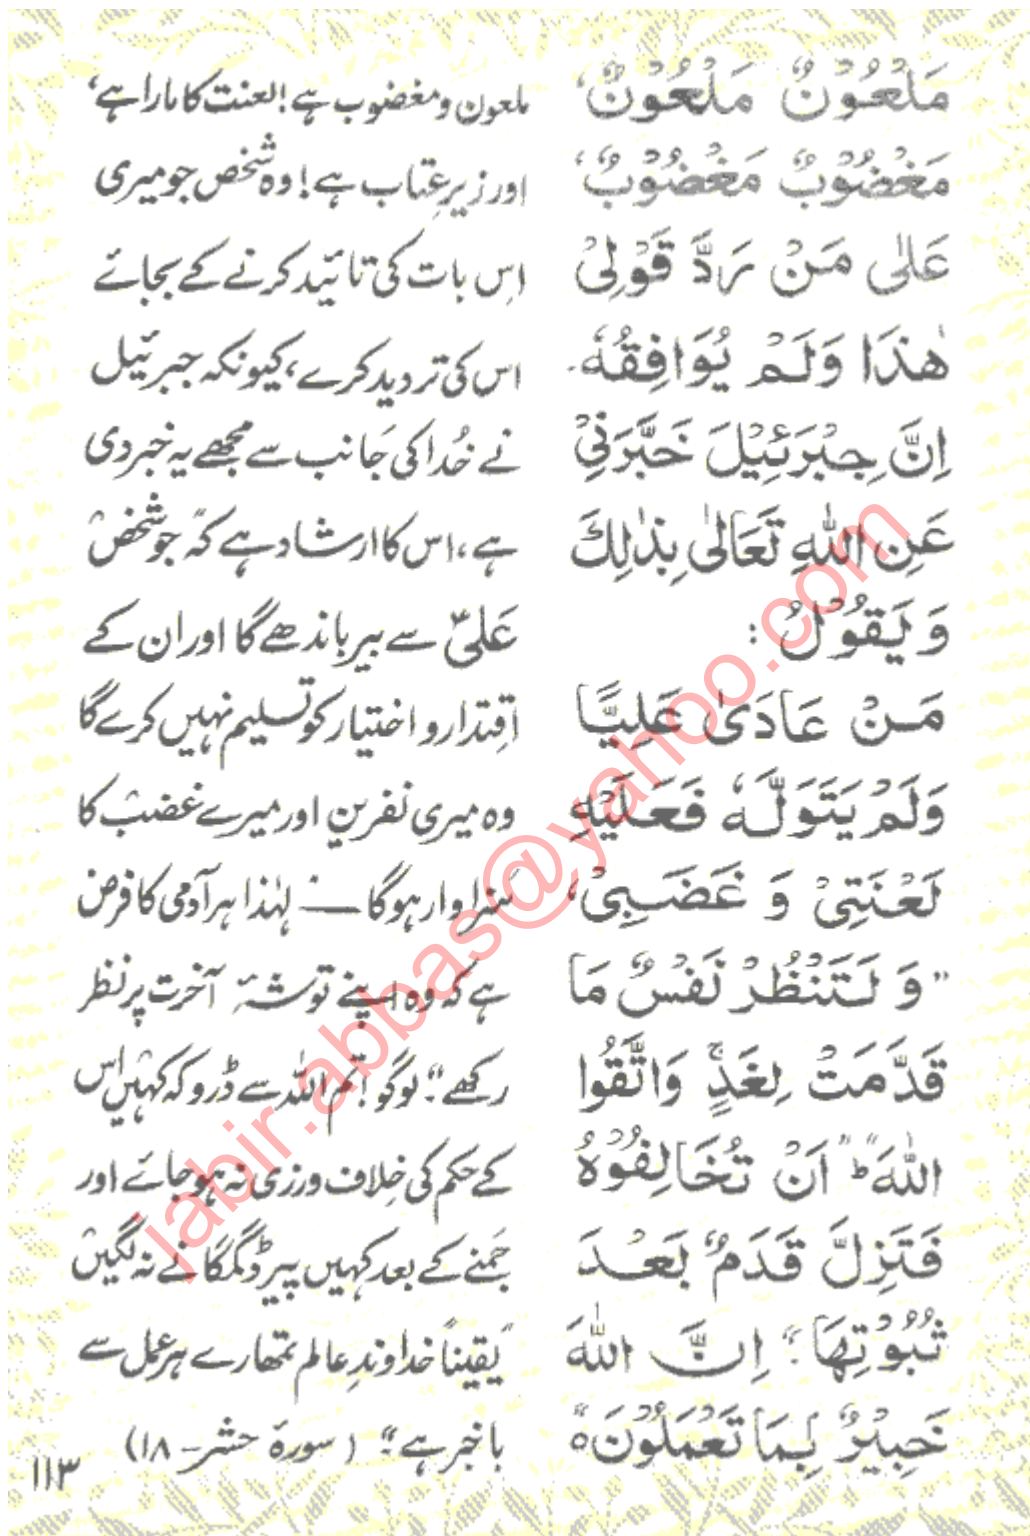 مَلْعُوْنٌ مَلْعُوْنٌ،
مَغْضُوْبٌ مَغْضُوْبٌ،
عَلٰى مَنْ رَدَّ قَوْلِىْ
هٰذَا وَلَمْ يُوَافِقْهُ۔
اِنَّ جِبْرَئِيْلَ خَبَّرَنِيْ
عَنِ اللّٰهِ تَعَالٰى بِذٰلِكَ
وَيَقُوْلُ :
مَنْ عَادَىٰ عَلِيًّا
وَلَمْ يَتَوَلَّهٗ فَعَلَيْهِ
لَعْنَتِىْ وَ غَضَبِىْ،
"وَ لَتَنْظُرْ نَفْسٌ مَا
قَدَّمَتْ لِغَدٍ ۚ وَاتَّقُوا
اللّٰهَ ط" اَنْ تُخَالِفُوْهُ
فَتَزِلَّ قَدَمٌ بَعْدَ
ثُبُوْتِهَا؛ اِنَّ اللّٰهَ
خَبِيْرٌ بِمَا تَعْمَلُوْنَ ہ"
ملعون و مغضوب ہے! لعنت کا مارا ہے،
اور زیرِ عِتاب ہے! وہ شخص جو میری
اِس بات کی تائید کرنے کے بجائے
اس کی تردید کرے، کیونکہ جبرئیل
نے خُدا کی جَانب سے مجھے یہ خبر دی
ہے، اس کا ارشاد ہے کہ "جو شخص
عَلیؑ سے بیر باندھے گا اور ان کے
اقتِدار و اختیار کو تسلیم نہیں کرے گا
وہ میری نفرین اور میرے غضب کا
سَزا وار ہوگا — " لہٰذا ہر آدمی کا فرض
ہے کہ وہ اپنے توشۂ آخرت پر نظر
رکھے" لوگو! تم اللہ سے ڈرو کہ کہیں اس
کے حکم کی خِلاف ورزی نہ ہو جائے اور
جَمنے کے بعد کہیں پیر ڈگمگانے نہ لگیں
"یقیناً خداوندِ عالم تمھارے ہر عمل سے
باخبر ہے" (سورہ حشر۔ ۱۸)
۱۱۳
jabir.abbas@yahoo.com